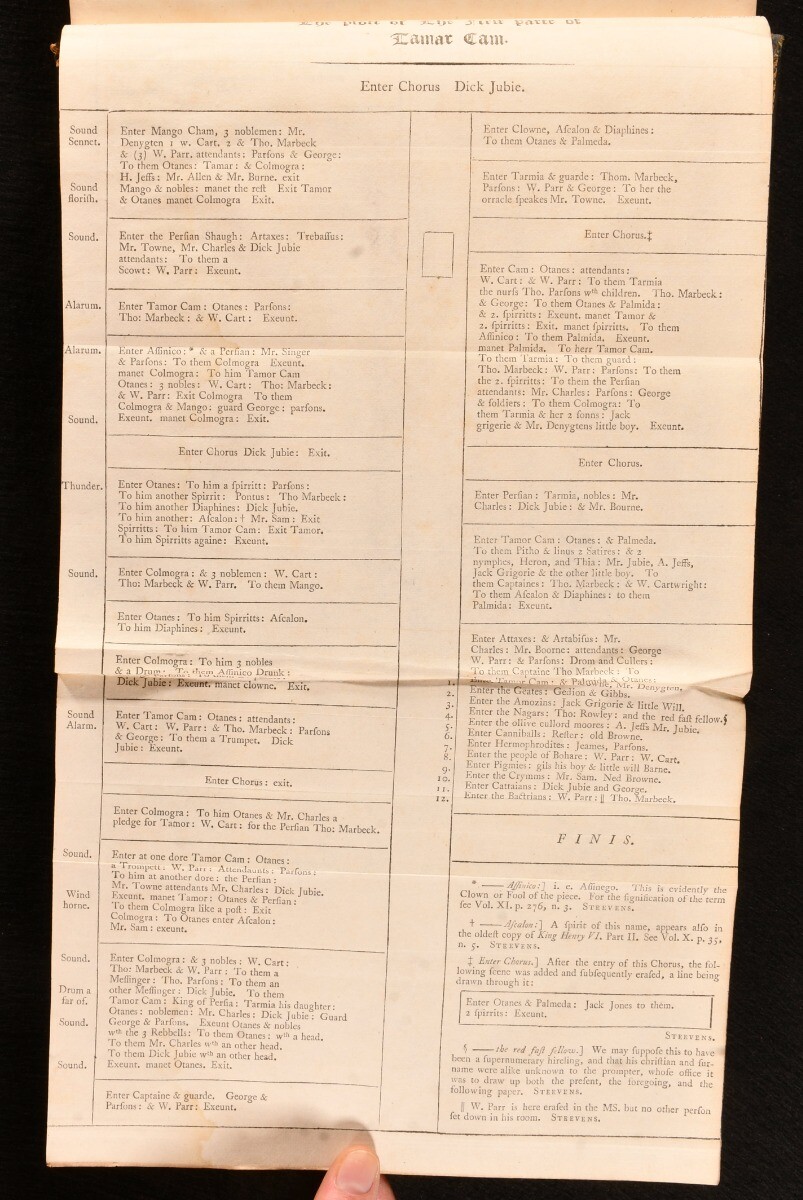 The plott of The First parte of
Tamar Cam.
Enter Chorus Dick Jubie.
Sound
Sennet.
Enter Mango Cham, 3 noblemen: Mr.
Denygten 1 w. Cart. 2 & Tho. Marbeck
& (3) W. Parr. attendants: Parſons & George:
To them Otanes: Tamar: & Colmogra:
H. Jeffs: Mr. Allen & Mr. Burne. exit
Sound
floriſh.
Mango & nobles: manet the reſt Exit Tamor
& Otanes manet Colmogra Exit.
Sound.
Enter the Perſian Shaugh: Artaxes: Trebaſſus:
Mr. Towne, Mr. Charles & Dick Jubie
attendants: To them a
Scowt: W. Parr: Exeunt.
Alarum.
Enter Tamor Cam: Otanes: Parſons:
Tho: Marbeck: & W. Cart: Exeunt.
Alarum.
Enter Aſſinico: * & a Perſian: Mr. Singer
& Parſons: To them Colmogra Exeunt.
manet Colmogra: To him Tamor Cam
Otanes: 3 nobles: W. Cart: Tho: Marbeck:
& W. Parr: Exit Colmogra To them
Colmogra & Mango: guard George: parſons.
Sound.
Exeunt. manet Colmogra: Exit.
Enter Chorus Dick Jubie: Exit.
Thunder.
Enter Otanes: To him a ſpirritt: Parſons:
To him another Spirrit: Pontus: Tho Marbeck:
To him another Diaphines: Dick Jubie.
To him another: Aſcalon: † Mr. Sam: Exit
Spirritts: To him Tamor Cam: Exit Tamor.
To him Spirritts againe: Exeunt.
Sound.
Enter Colmogra: & 3 noblemen: W. Cart:
Tho: Marbeck & W. Parr. To them Mango.
Enter Otanes: To him Spirritts: Aſcalon.
To him Diaphines: Exeunt.
Enter Colmogra: To him 3 nobles
& a Drum: To them Aſſinico Drunk:
Dick Jubie: Exeunt. manet clowne. Exit.
Sound
Alarm.
Enter Tamor Cam: Otanes: attendants:
W. Cart: W. Parr: & Tho. Marbeck: Parſons
& George: To them a Trumpet. Dick
Jubie: Exeunt.
Enter Chorus: exit.
Enter Colmogra: To him Otanes & Mr. Charles a
pledge for Tamor: W. Cart: for the Perſian Tho: Marbeck.
Sound.
Enter at one dore Tamor Cam: Otanes:
a Trompett: W. Parr: Attendaunts: Parſons:
To him at another dore: the Perſian:
Mr. Towne attendants Mr. Charles: Dick Jubie.
Wind
horne.
Exeunt. manet Tamor: Otanes & Perſian:
To them Colmogra like a poſt: Exit
Colmogra: To Otanes enter Aſcalon:
Mr. Sam: exeunt.
Sound.
Enter Colmogra: & 3 nobles; W. Cart:
Tho: Marbeck & W. Parr: To them a
Meſſinger: Tho. Parſons: To them an
Drum a
far of.
other Meſſinger: Dick Jubie. To them
Tamor Cam: King of Perſia: Tarmia his daughter:
Otanes: noblemen: Mr. Charles: Dick Jubie: Guard
Sound.
George & Parſons. Exeunt Otanes & nobles
wth the 3 Rebbells: To them Otanes: wth a head.
To them Mr. Charles wth an other head.
To them Dick Jubie wth an other head.
Sound.
Exeunt. manet Otanes. Exit.
Enter Captaine & guarde. George &
Parſons: & W. Parr: Exeunt.
Enter Clowne, Aſcalon & Diaphines:
To them Otanes & Palmeda.
Enter Tarmia & guarde: Thom. Marbeck,
Parſons: W. Parr & George: To her the
orracle ſpeakes Mr. Towne. Exeunt.
Enter Chorus.‡
Enter Cam: Otanes: attendants:
W. Cart: & W. Parr: To them Tarmia
the nurſs Tho. Parſons wth children. Tho. Marbeck:
& George: To them Otanes & Palmida:
& 2. ſpirritts: Exeunt. manet Tamor &
2. ſpirritts: Exit. manet ſpirritts. To them
Aſſinico: To them Palmida. Exeunt.
manet Palmida. To herr Tamor Cam.
To them Tarmia: To them guard:
Tho. Marbeck: W. Parr: Parſons: To them
the 2. ſpirritts: To them the Perſian
attendants: Mr. Charles: Parſons: George
& ſoldiers: To them Colmogra: To
them Tarmia & her 2 ſonns: Jack
grigerie & Mr. Denygtens little boy. Exeunt.
Enter Chorus.
Enter Perſian: Tarmia, nobles: Mr.
Charles: Dick Jubie: & Mr. Bourne.
Enter Tamor Cam: Otanes: & Palmeda.
To them Pitho & linus 2 Satires: & 2
nymphes, Heron, and Thia: Mr. Jubie, A. Jeffs,
Jack Grigorie & the other little boy. To
them Captaines: Tho. Marbeck: & W. Cartwright:
To them Aſcalon & Diaphines: to them
Palmida: Exeunt.
Enter Attaxes: & Artabiſus: Mr.
Charles: Mr. Boorne: attendants: George
W. Parr: & Parſons: Drom and Cullers:
To them Captaine Tho Marbeck: To
Tamor Cam: & Palmida & Otanes:
1. Mr. Denygten.
2. Enter the Geates: Gedion & Gibbs.
3. Enter the Amozins: Jack Grigorie & little Will.
4. Enter the Nagars: Tho: Rowley: and the red faſt fellow.§
5. Enter the ollive cullord moores: A. Jeffs Mr. Jubie.
6. Enter Canniballs: Reſter: old Browne.
7. Enter Hermophrodites: Jeames, Parſons.
8. Enter the people of Bohare: W. Parr: W. Cart.
9. Enter Pigmies: gils his boy & little will Barne.
10. Enter the Crymms: Mr. Sam. Ned Browne.
11. Enter Cattaians: Dick Jubie and George.
12. Enter the Bactrians: W. Parr: ‖ Tho. Marbeck.
FINIS.
* —— Aſſinico:] i. e. Aſſinego. This is evidently the
Clown or Fool of the piece. For the ſignification of the term
ſee Vol. XI. p. 276, n. 3. STEEVENS.
† —— Aſcalon:] A ſpirit of this name, appears alſo in
the oldeſt copy of King Henry VI. Part II. See Vol. X. p. 35,
n. 5. STEEVENS.
‡ Enter Chorus.] After the entry of this Chorus, the fol-
lowing ſcene was added and ſubſequently eraſed, a line being
drawn through it:
Enter Otanes & Palmeda: Jack Jones to them.
2 ſpirrits: Exeunt.
STEEVENS.
§ —— the red faſt fellow.] We may ſuppoſe this to have
been a ſupernumerary hireling, and that his chriſtian and ſur-
name were alike unknown to the prompter, whoſe office it
was to draw up both the preſent, the foregoing, and the
following paper. STEEVENS.
‖ W. Parr is here eraſed in the MS. but no other perſon
ſet down in his room. STEEVENS.